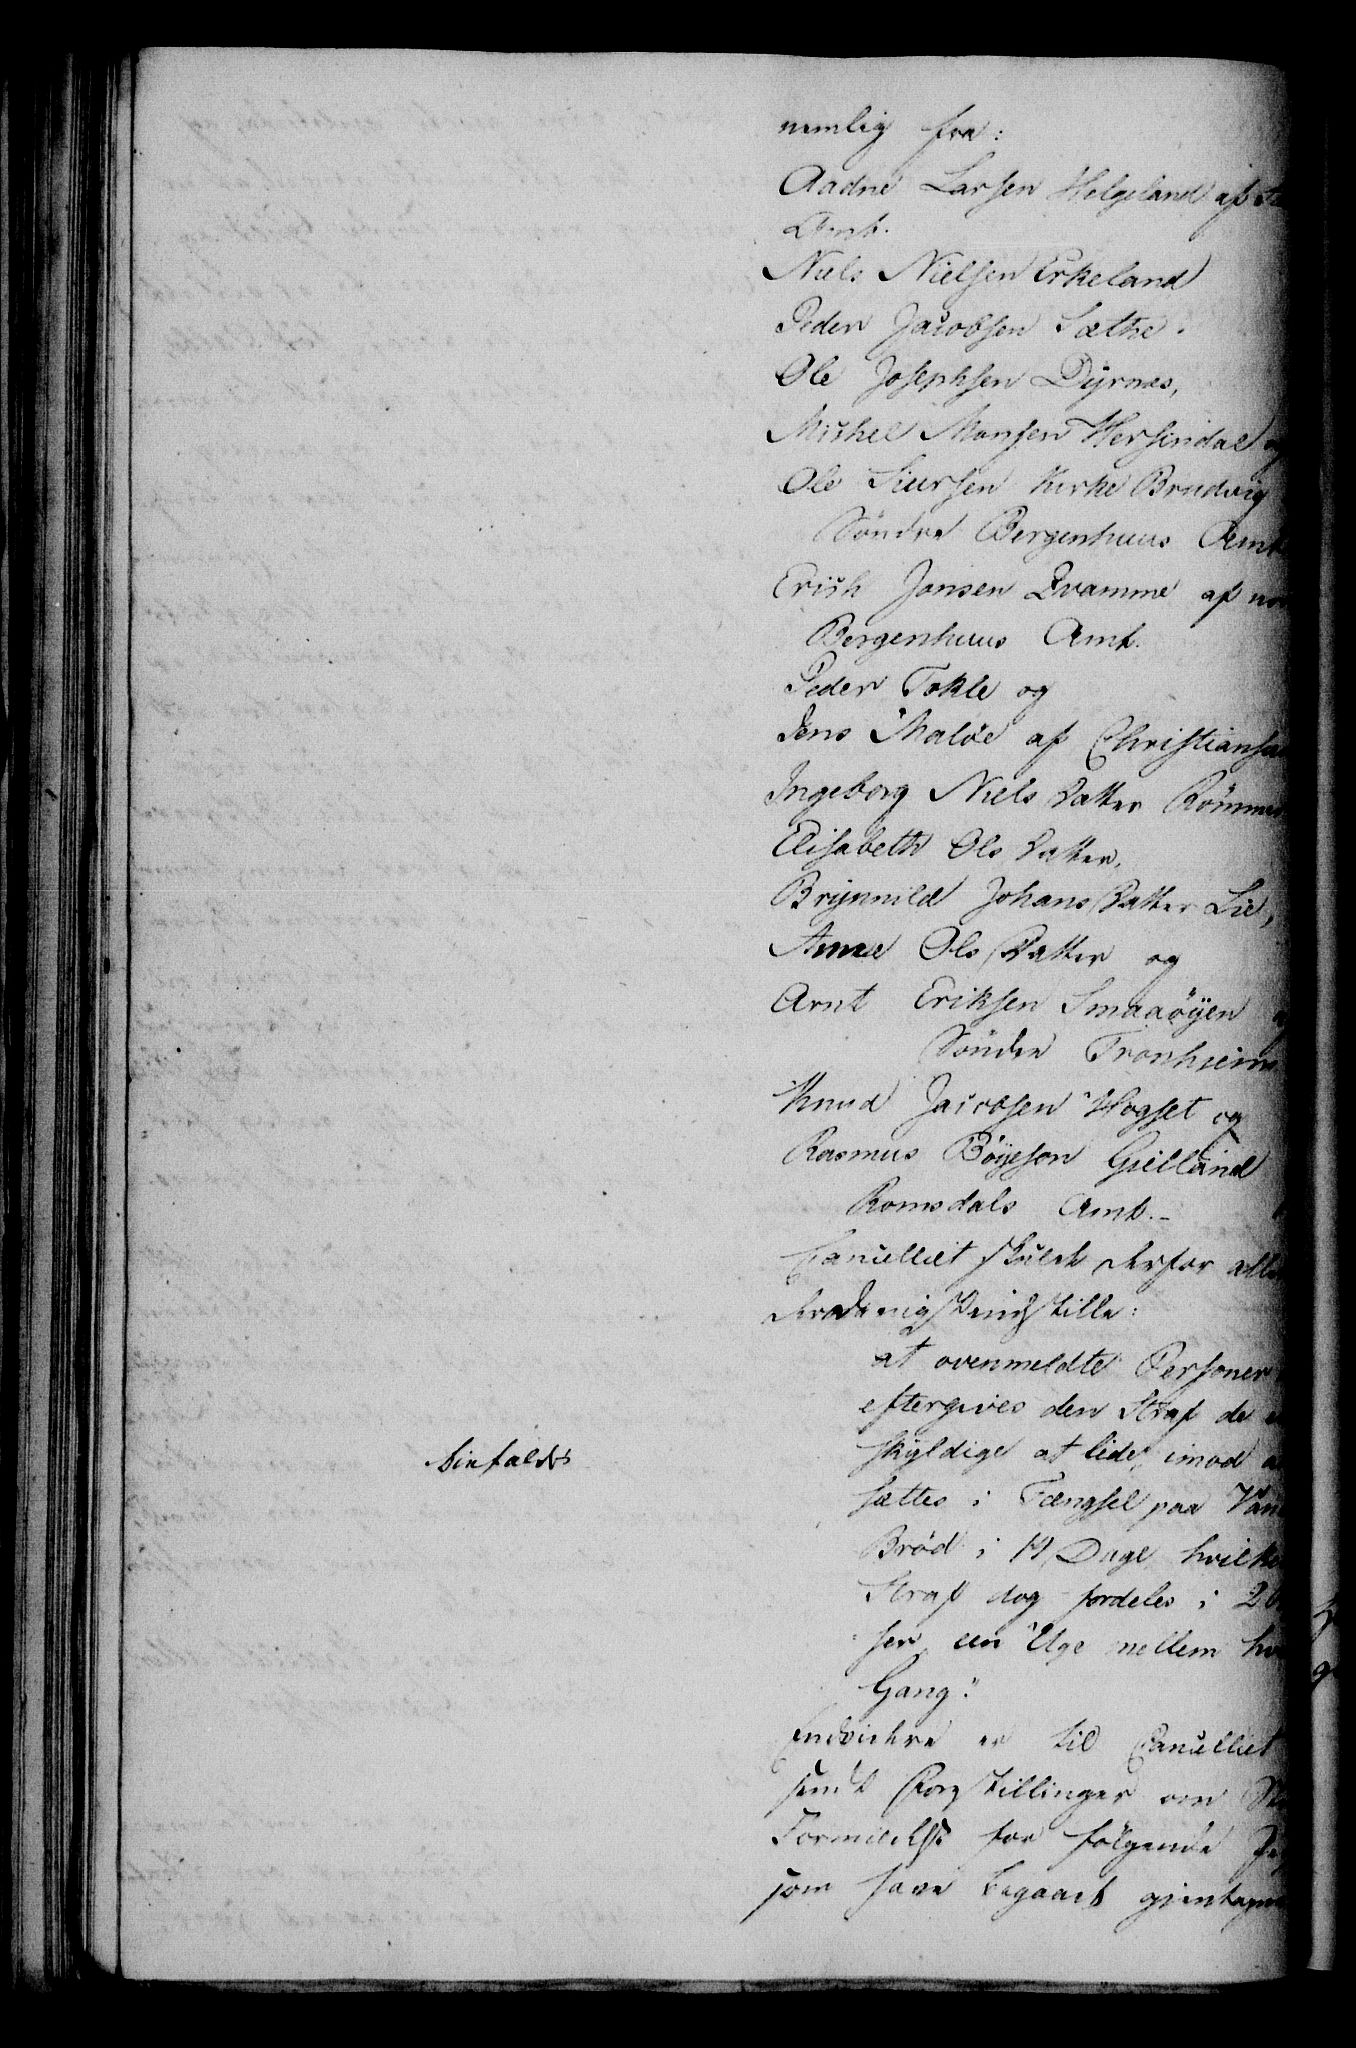 nemlig fra:
Aadne Larsen Helgeland af
Amt.
Niels Nielsen Erkeland
Peder Jacobsen Sæthe.
Ole Josephsen Dyrnæs,
Michel Monsen Hersindal og
Ole Siursen Kirke Brudvig
Søndre Bergenhuus Amt
Erich Jonsen Qvamme af
Bergenhuus Amt.
Peder Tokle og
Jens Maløe af
Ingeborg Niels Datter
Elisabeth Ols Datter,
Brynnild Johans Datter Lie,
Anne Ols Datter og
Arnt Eriksen Smaaøyen
Søndre
Knud Jacobsen Hogset og
Rasmus Bøyeson Gielland
Romsdals Amt.-
Cancelliet skulde derfor
indstille:
at ovenmeldte Personer
eftergives den Straf de
skyldige at lide, imod
sættes i Fængsel paa
Brød i 14 Dage,
Straf dog fordeles i 2
ser, een Uge mellem
Gang."
Endvidere er til Cancelliet
sendt Forestillinger om
Formildelse for følgende
som have begaaet
bifaldt